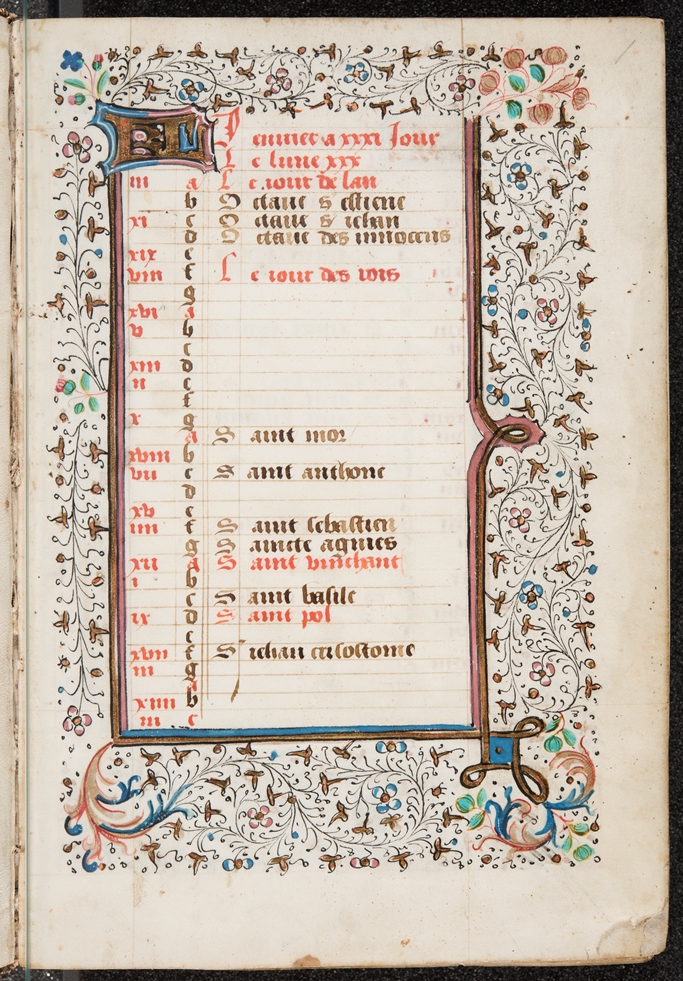 Jenuier a xxxi Jour
Le lune xxx
iii a Le iour de lan
b Octaue s estiene
xi c Octaue s iehan
d Octaue des innocens
xix e
viii f Le iour des rois
g
xvi a
v b
c
xiii d
ii e
f
x g
a Saint mor
xviii b
vii c Saint anthone
d
xv e
iiii f Saint sebastien
g Saincte agnies
xii a Saint vinchant
i b
c Saint basile
ix d Saint pol
e
xvii f S iehan crisostome
g
a
xiiii b
iii c